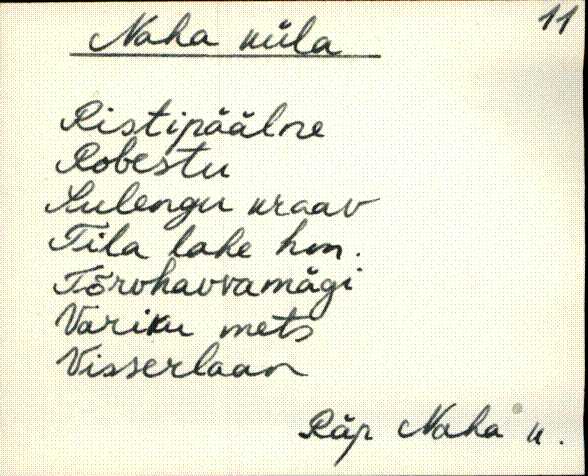 11
Naha küla
Ristipäälne
Robestu
Sulengu kraav
Tila lahe hm.
Tõrvhavvamägi
Variku mets
Visserlaan
Räp Naha k.